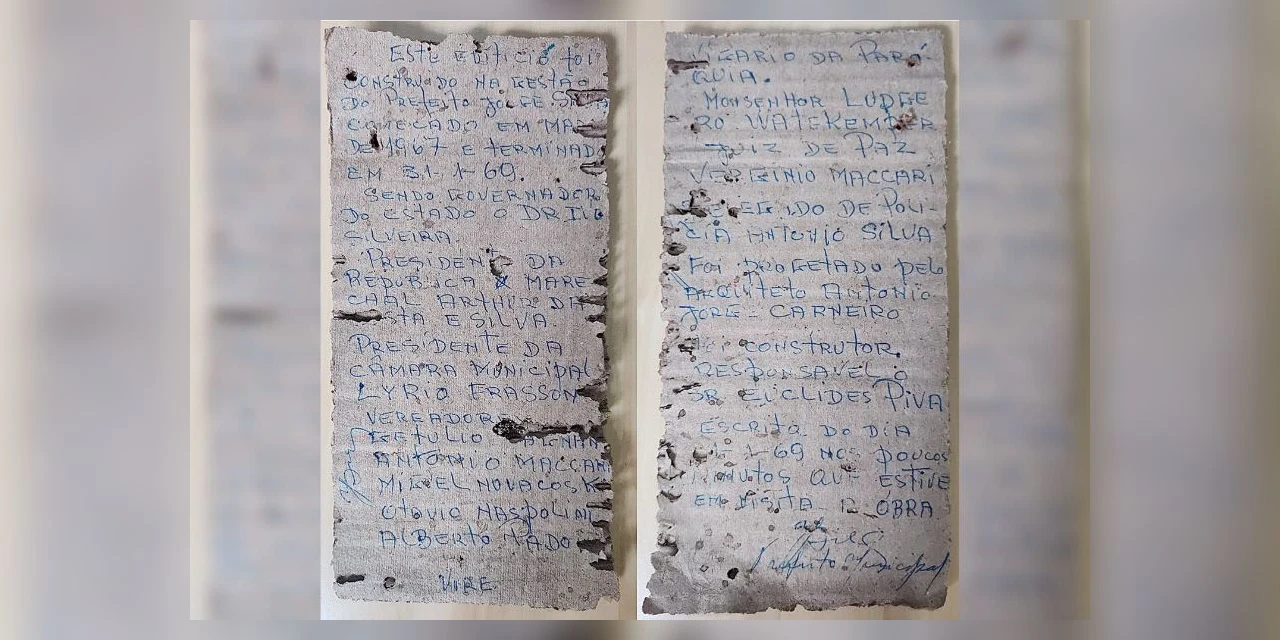 Este edificio foi
CONSTRUIDO NA GESTÃO
DO PREFEITO JORGE SILVA
COMEÇADO EM MAR
DE 1967 E TERMINAD
EM 31-1-69.
SENDO GOVERNADOR
DO ESTADO O DR IVO
SILVEIRA.
PRESIDENTE DA
REPÚBLICA MARE
CHAL ARTHUR DA
COSTA E SILVA.
PRESIDENTE DA
CÂMARA MUNICIPAL
LYRIO FRASSON
VEREADORES
GETULIO
ANTONIO MACCARI
MIGUEL NOVACOSK
OTAVIO NASPOLINI
ALBERTO
VIRE
VIGARIO DA PARÓ
QUIA.
MONSENHOR LUDGE
RO WATEKEMPER
JUIZ DE PAZ
VERGINIO MACCARI
DELEGADO DE POLI-
CIA ANTONIO SILVA
FOI PROGETADO PELO
ARQUITETO ANTONIO
JORGE - CARNEIRO
FOI CONSTRUTOR
RESPONSAVEL O
SR EUCLIDES PIVA
ESCRITA DO DIA
1-69 NOS POUCOS
MINUTOS QUE ESTIVE
EM VISITA A OBRA
Prefeito Municipal